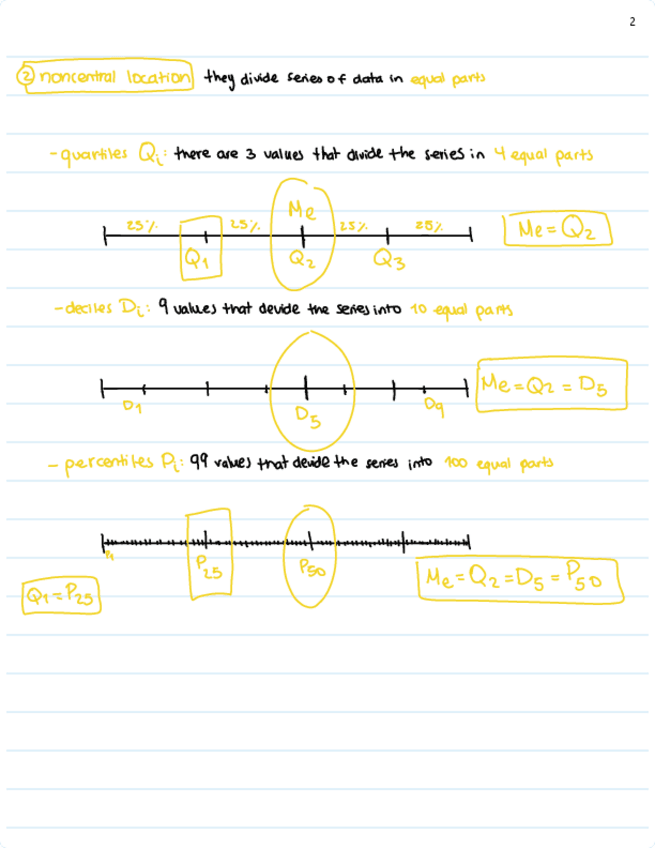 2
② noncentral location they divide series of data in equal parts
- quartiles Qi: there are 3 values that divide the series in 4 equal parts
Me
25% 25% 25% 25%
Me = Q2
Q1 Q2 Q3
- deciles Di: 9 values that devide the series into 10 equal parts
Me = Q2 = D5
D1 D5 D9
- percentiles Pi: 99 values that devide the series into 100 equal parts
P1 P25 P50
Me = Q2 = D5 = P50
Q1 = P25